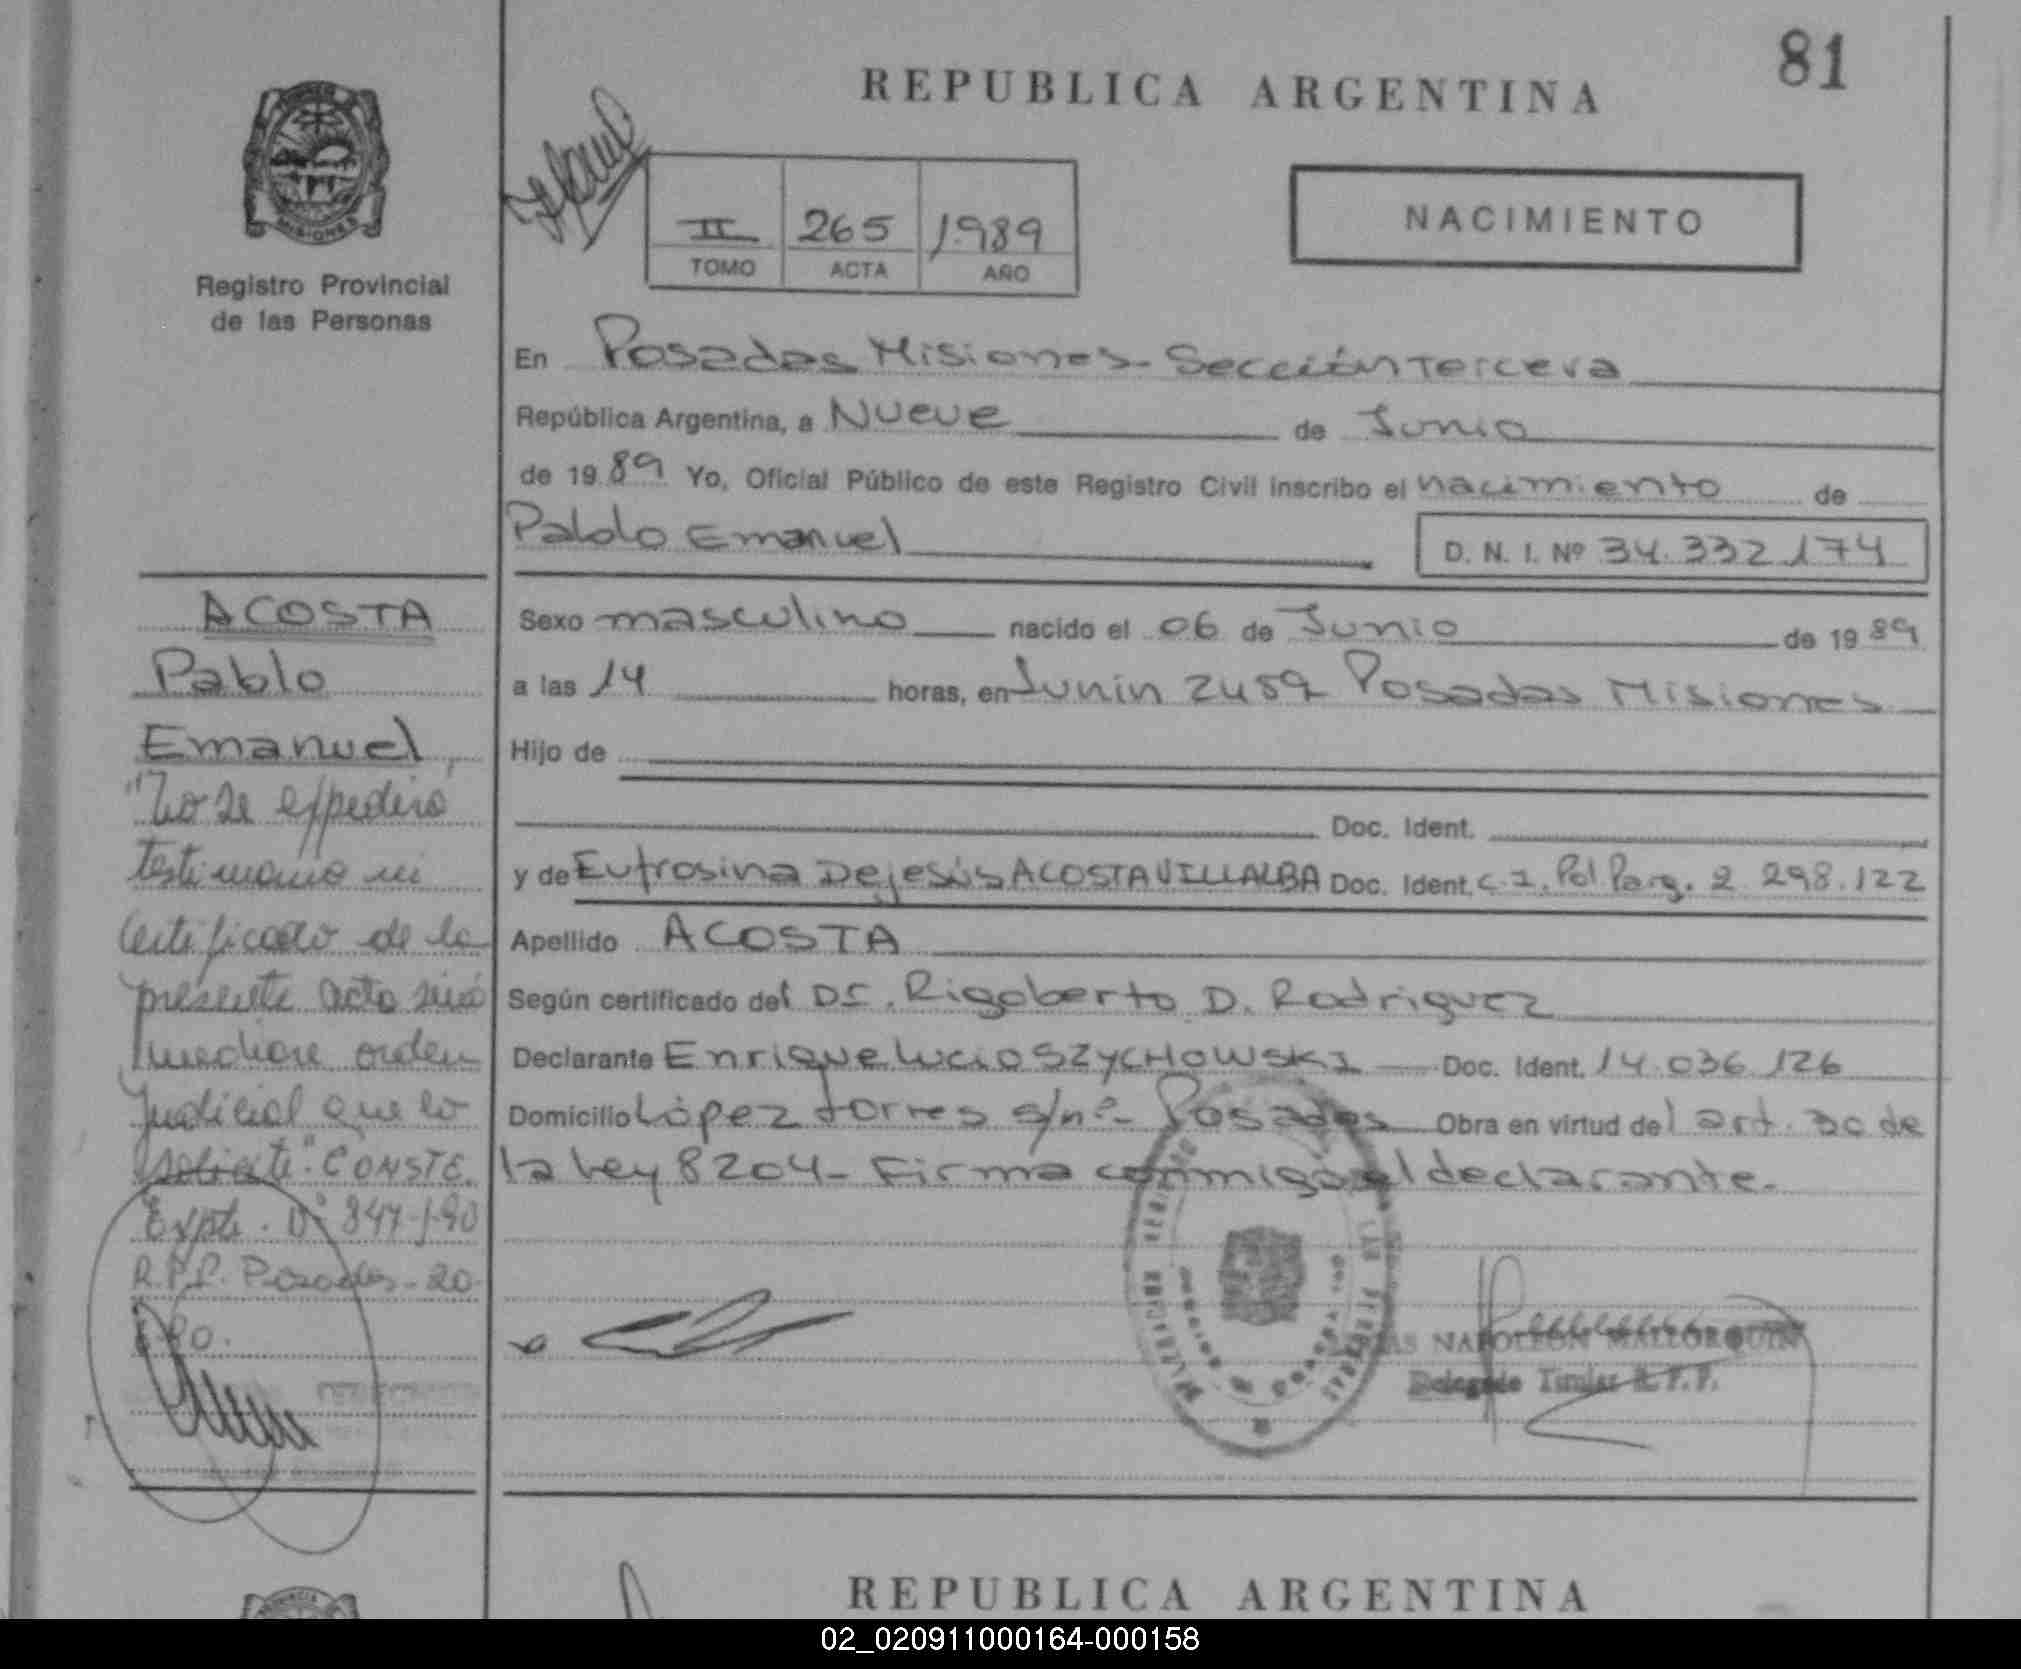 81
REPUBLICA ARGENTINA
MISIONES
Registro Provincial
de las Personas
II 265 1989
TOMO ACTA AÑO
NACIMIENTO
En Posadas Misiones - Sección Tercera
República Argentina, a Nueve de Junio
de 19 89 Yo, Oficial Público de este Registro Civil inscribo el nacimiento de
Pablo Emanuel
D. N. I. Nº 34.332.174
ACOSTA
Pablo
Emanuel
"No se expedirá
testimonio ni
certificado de la
presente acta sino
mediare orden
Judicial que lo
solicite". CONSTE.
Expte. Nº 847-J-90
R.P.P. Posadas - 20
Sexo masculino nacido el 06 de Junio de 19 89
a las 14 horas, en Junin 2459 Posadas Misiones
Hijo de
Doc. Ident.
y de Eufrosina De jesús ACOSTA VILLALBA Doc. Ident. C.I. Pol Parg. 2.298.122
Apellido ACOSTA
Según certificado del Dr. Rigoberto D. Rodriguez
Declarante Enrique Lucio SZYCHOWSKI Doc. Ident. 14.036.126
Domicilio López torres s/nº - Posadas Obra en virtud del art. 30 de
la Ley 8204 - Firma conmigo el declarante.
NAPOLEON MALLORQUIN
Delegado Titular R. P. P.
REPUBLICA ARGENTINA
02_020911000164-000158